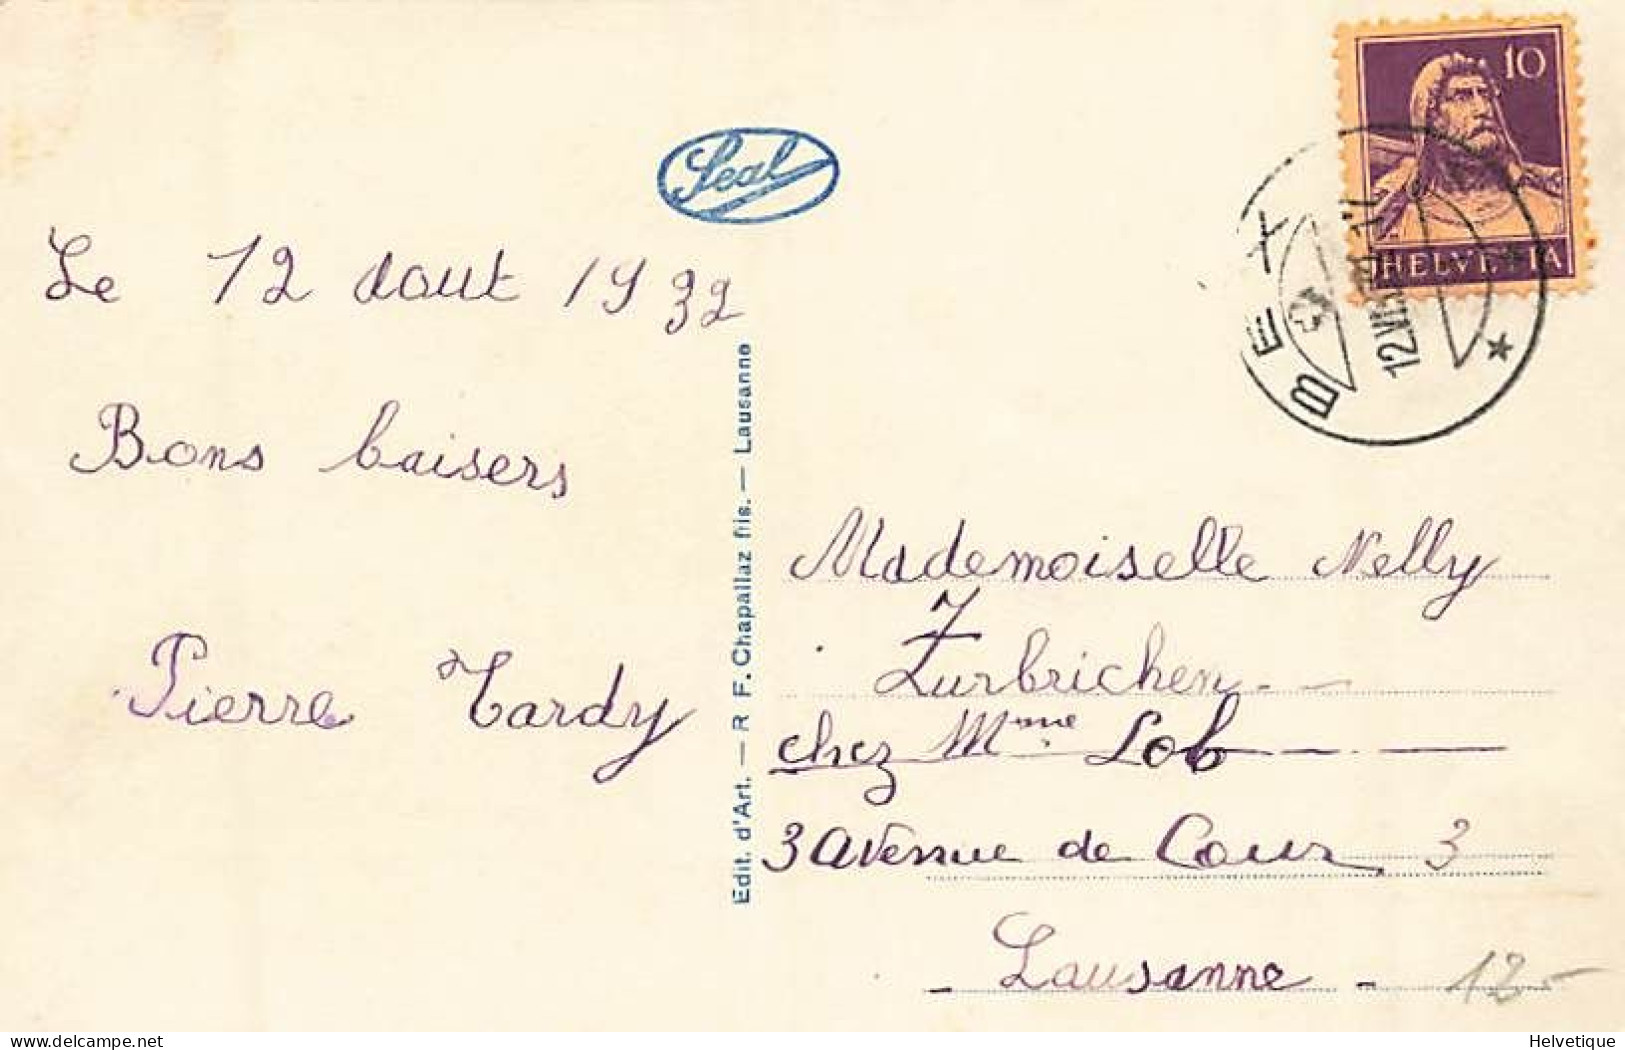 Seal
Le 12 aout 1932
Bons baisers
Pierre Tardy
Edit. d'Art. — R. F. Chapallaz fils. — Lausanne
10
HELVETIA
BEX
12.VIII.
Mademoiselle Nelly
Zurbrichen
chez Mme Lob
3 Avenue de Cour 3
Lausanne
12-
delcampe.net
Helvetique